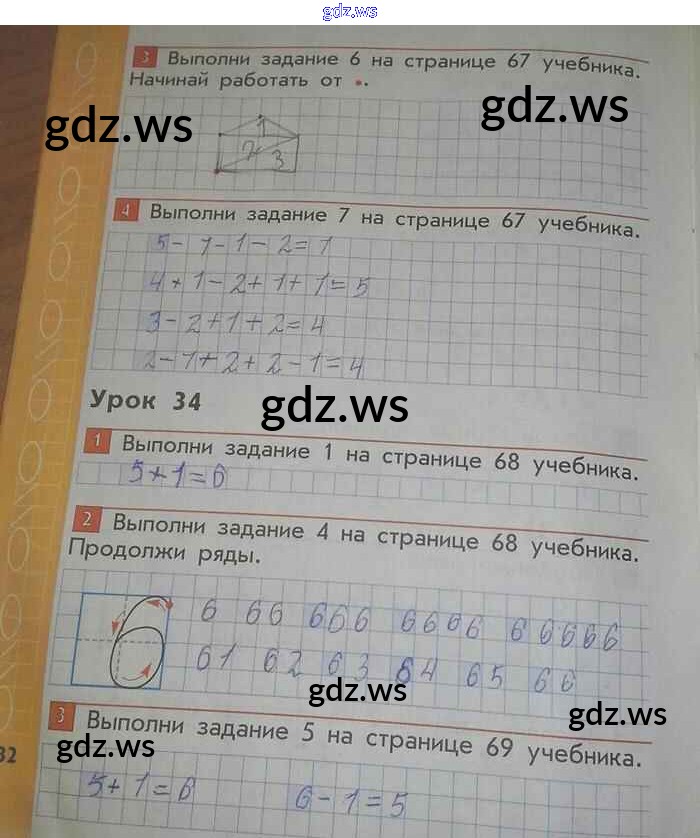 gdz.ws
3 Выполни задание 6 на странице 67 учебника.
Начинай работать от •.
gdz.ws
gdz.ws
1
2
3
4 Выполни задание 7 на странице 67 учебника.
5-1-1-2=1
4+1-2+1+1=5
3-2+1+2=4
2-1+2+2-1=4
Урок 34
gdz.ws
1 Выполни задание 1 на странице 68 учебника.
5+1=6
2 Выполни задание 4 на странице 68 учебника.
Продолжи ряды.
6 66 666 6666 66666
61 62 63 64 65 66
gdz.ws
gdz.ws
3 Выполни задание 5 на странице 69 учебника.
gdz.ws
32
5+1=6 6-1=5